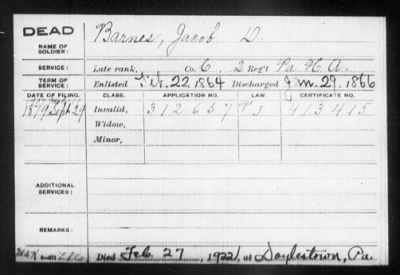 DEAD
NAME OF SOLDIER: Barnes, Jacob D
SERVICE: Late rank, Co. G, 2 Reg't Pa H A.
TERM OF SERVICE: Enlisted 22, 1864 Discharged Jan. 29, 1866
DATE OF FILING. CLASS. APPLICATION NO. LAW. CERTIFICATE NO.
1879 Sept 29 Invalid, 312657 413415
Widow,
Minor,
ADDITIONAL SERVICES:
REMARKS:
Died Feb. 27, 1922, at Doylestown, Pa.